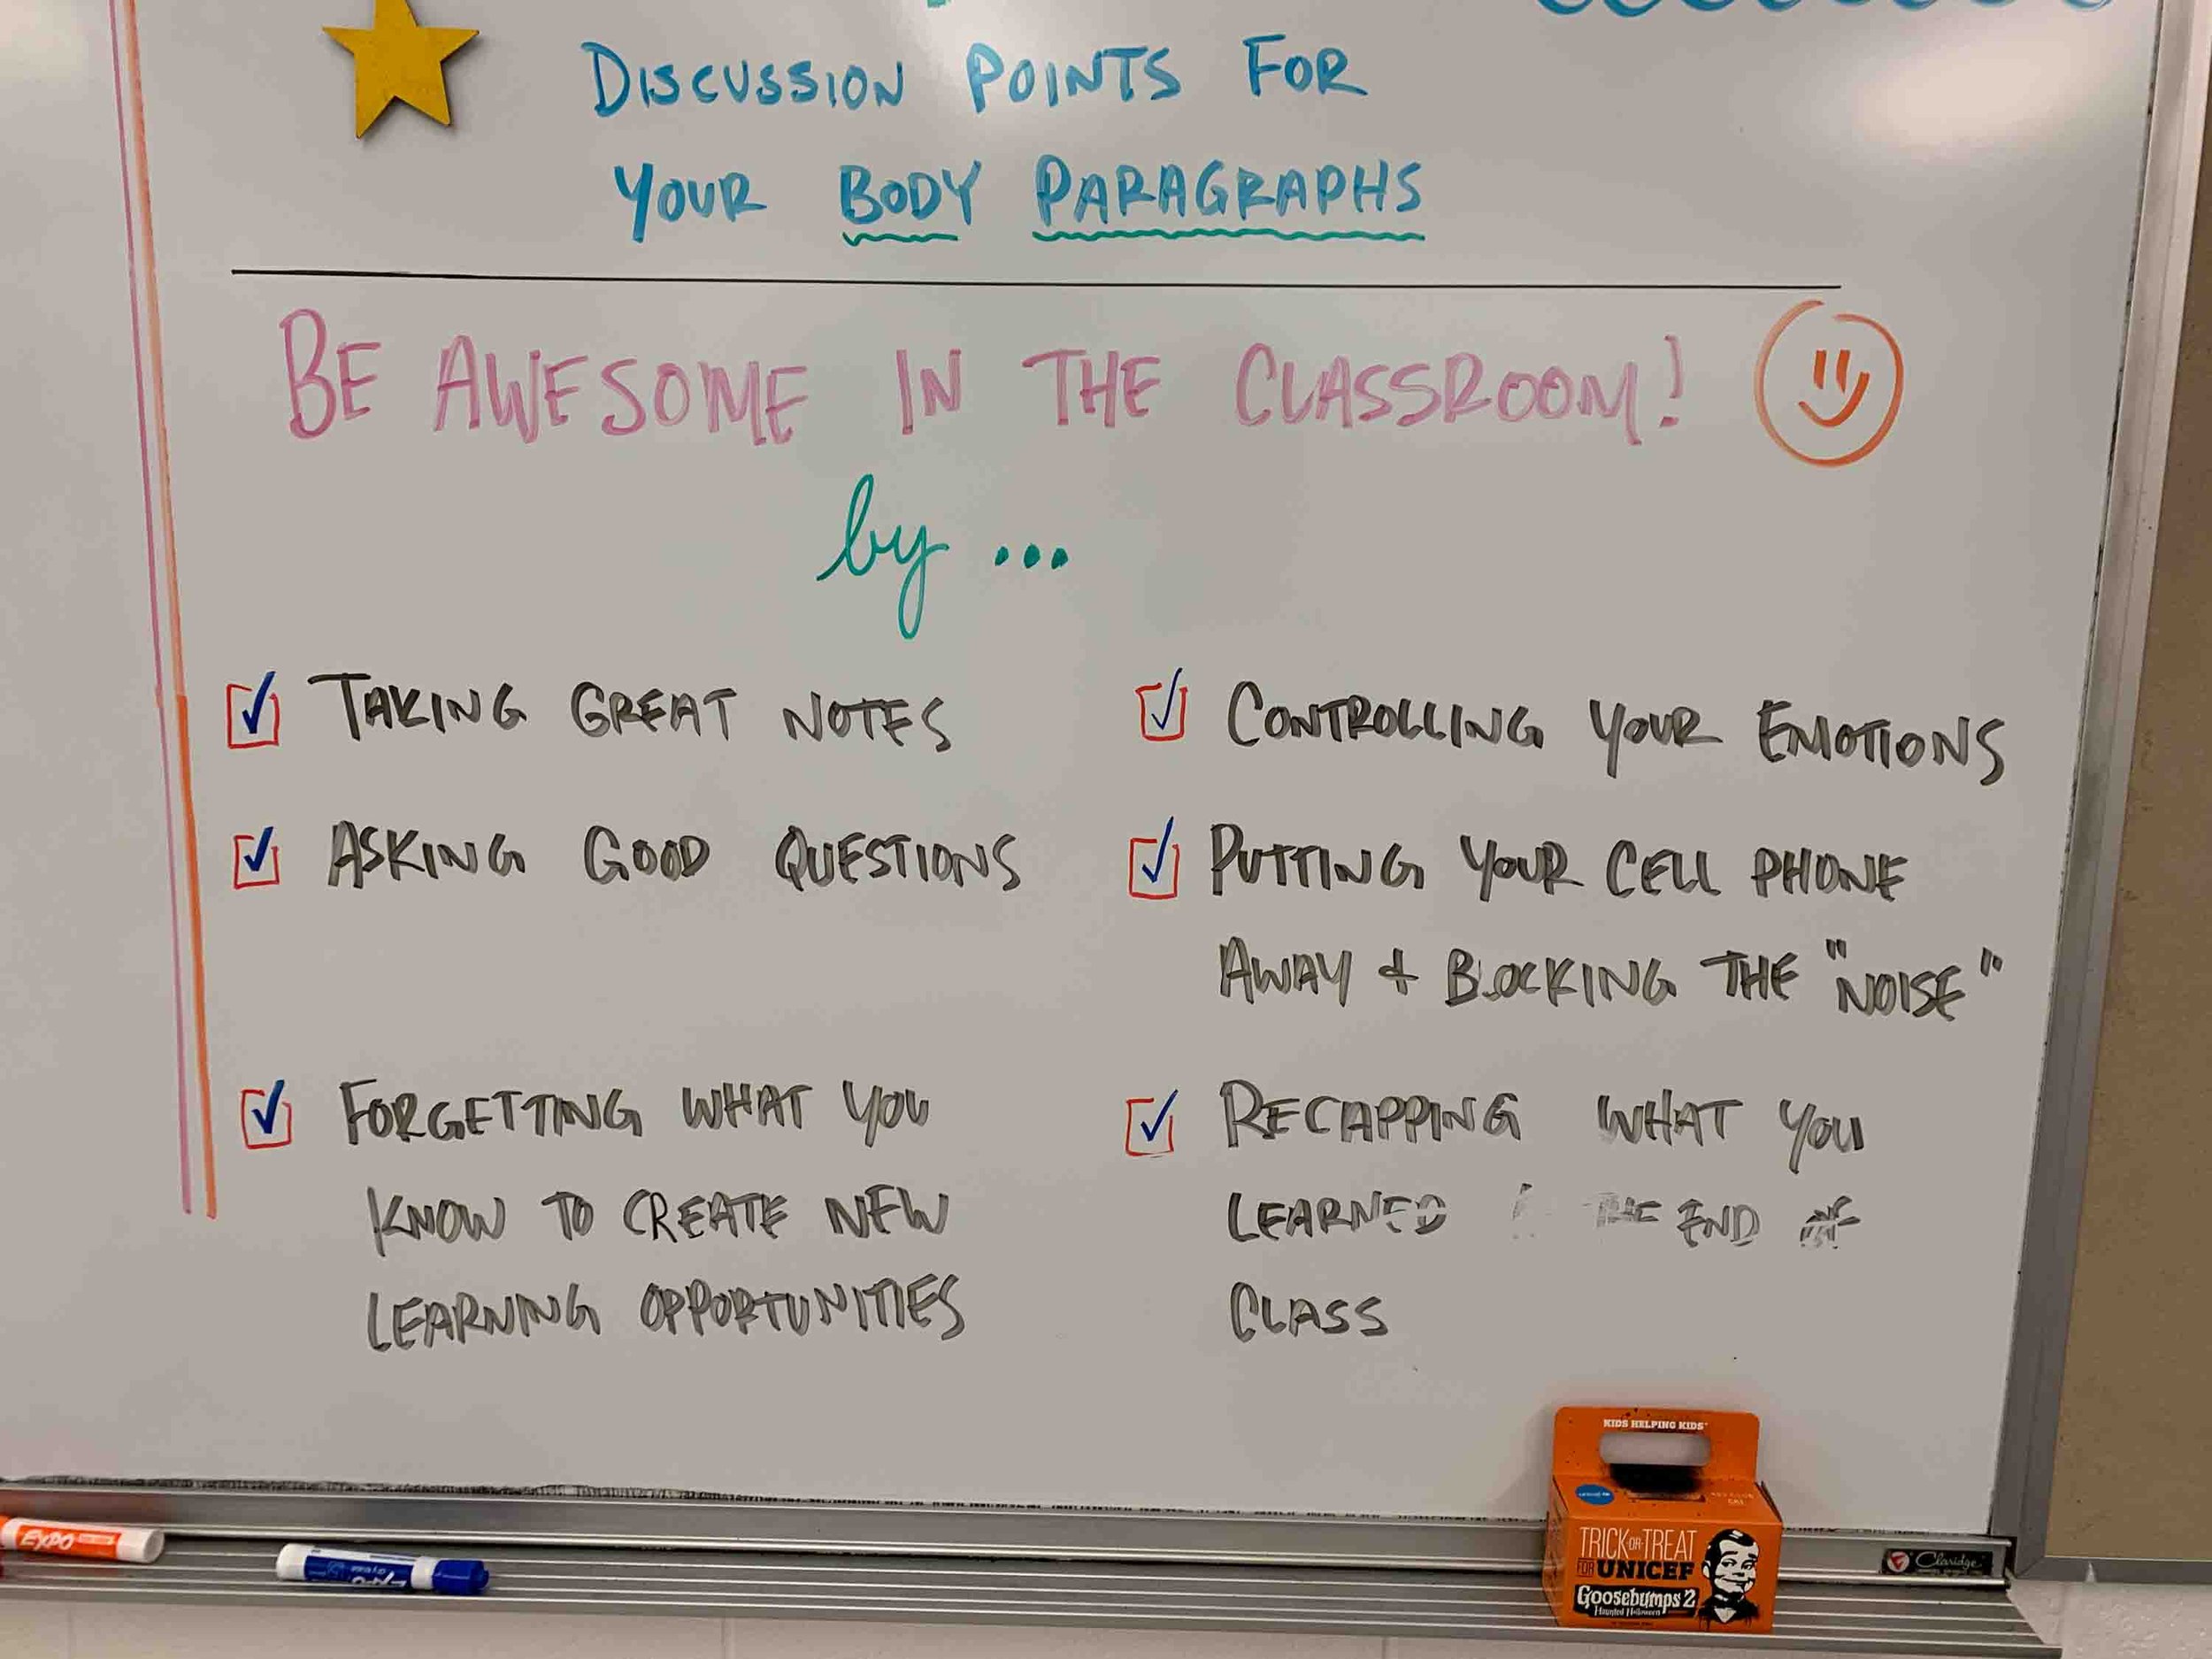 DISCUSSION POINTS FOR
YOUR BODY PARAGRAPHS
BE AWESOME IN THE CLASSROOM!
by ...
TAKING GREAT NOTES
ASKING GOOD QUESTIONS
FORGETTING WHAT YOU
KNOW TO CREATE NEW
LEARNING OPPORTUNITIES
CONTROLLING YOUR EMOTIONS
PUTTING YOUR CELL PHONE
AWAY + BLOCKING THE "NOISE"
RECAPPING WHAT YOU
LEARNED THE END OF
CLASS
KIDS HELPING KIDS
TRICK-OR-TREAT
FOR UNICEF
Goosebumps 2
Haunted Halloween
EXPO
Claridge